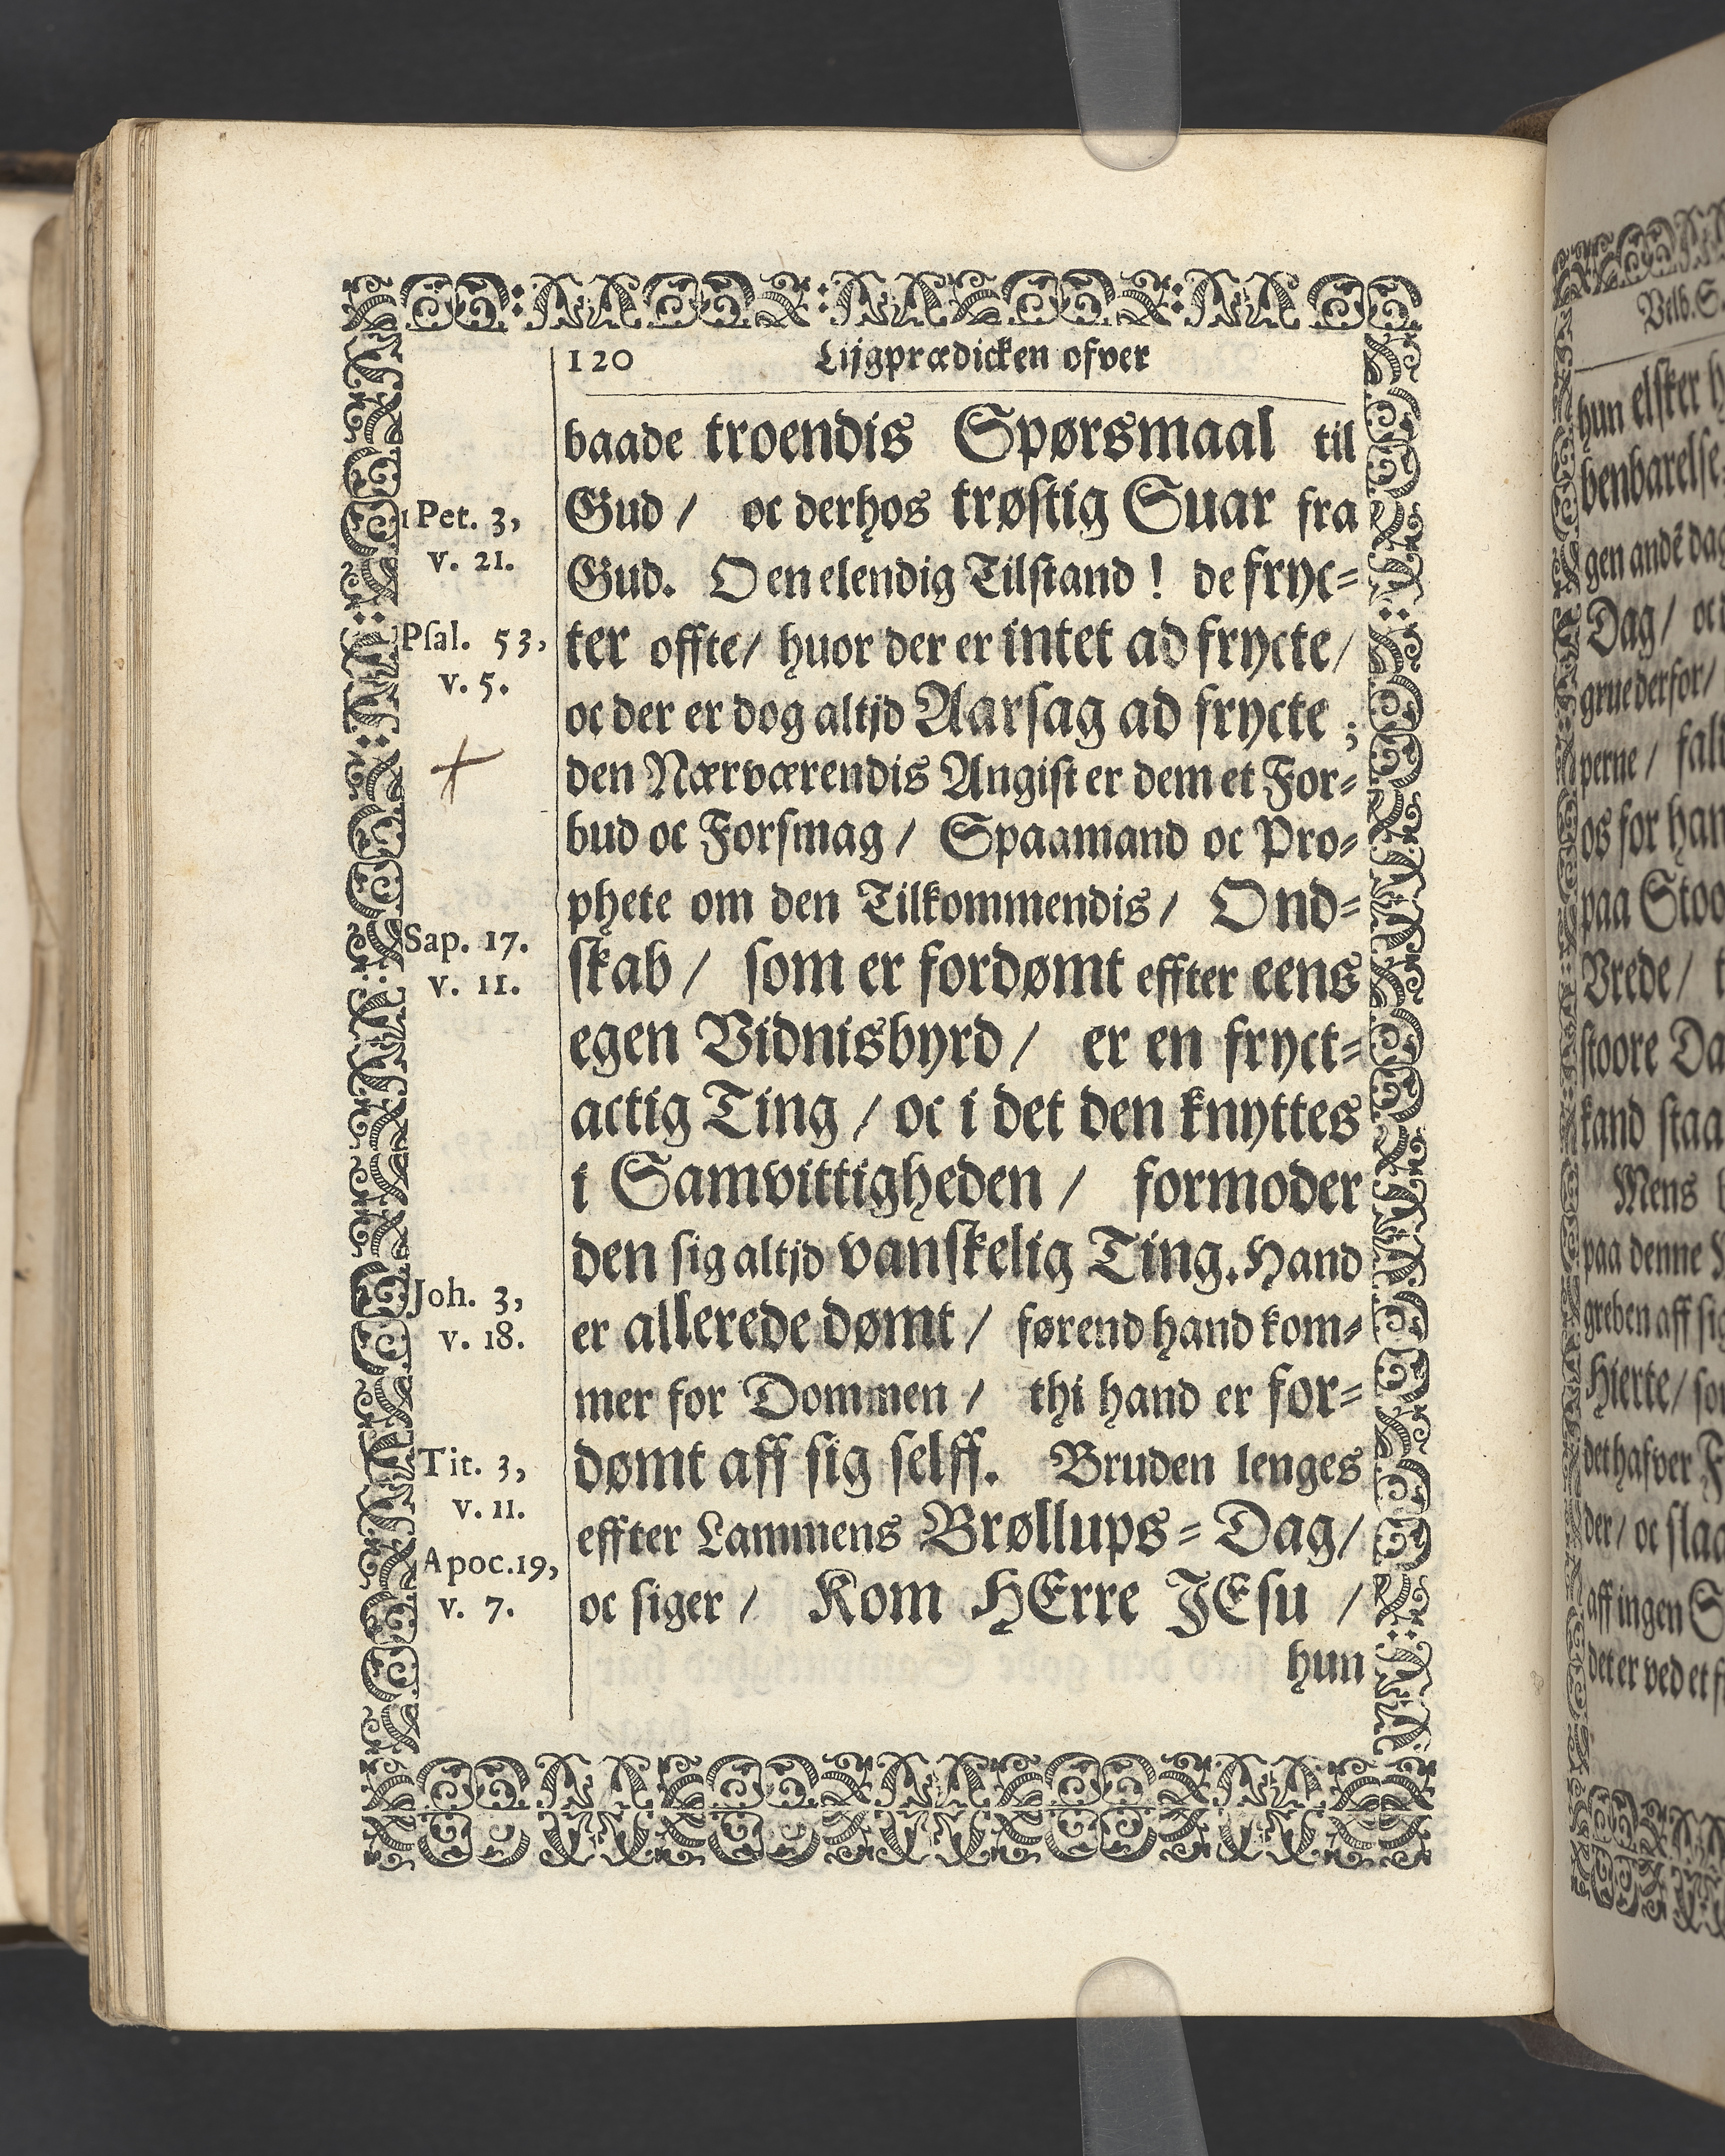 120 Lijgprædicken ofver
baade troendis Spørsmaal til
Gud / oc derhos trøstig Suar fra
Gud. O en elendig Tilstand ! de fryc=
ter offte/ huor der er intet ad frycte/
oc der er dog altjd Aarsag ad frycte ;
den Nærværendis Angist er dem et For=
bud oc Forsmag / Spaamand oc Pro=
phete om den Tilkommendis / Ond=
skab / som er fordømt effter eens
egen Vidnisbyrd / er en fryct=
actig Ting / oc i det den knyttes
i Samvittigheden / formoder
den sig altjd vanskelig Ting. Hand
er allerede dømt / førend hand kom=
mer for Dommen / thi hand er for=
dømt aff sig selff. Bruden lenges
effter Lammens Brøllups=Dag/
oc siger / Kom HErre JEsu /
hun
1 Pet. 3,
v. 21.
Psal. 53,
v. 5.
Sap. 17.
v. 11.
Joh. 3,
v. 18.
Tit. 3,
v. 11.
Apoc.19,
v. 7.
hun elsker
benbarelse
gen andē dag
Dag/ oc
grue derfor/
perne /
os for han
paa
Vrede/
stoore
kand staa
Mens
paa denne
greben aff sig
Hierte/
det hafver
der/ oc
aff ingen
det er ved et